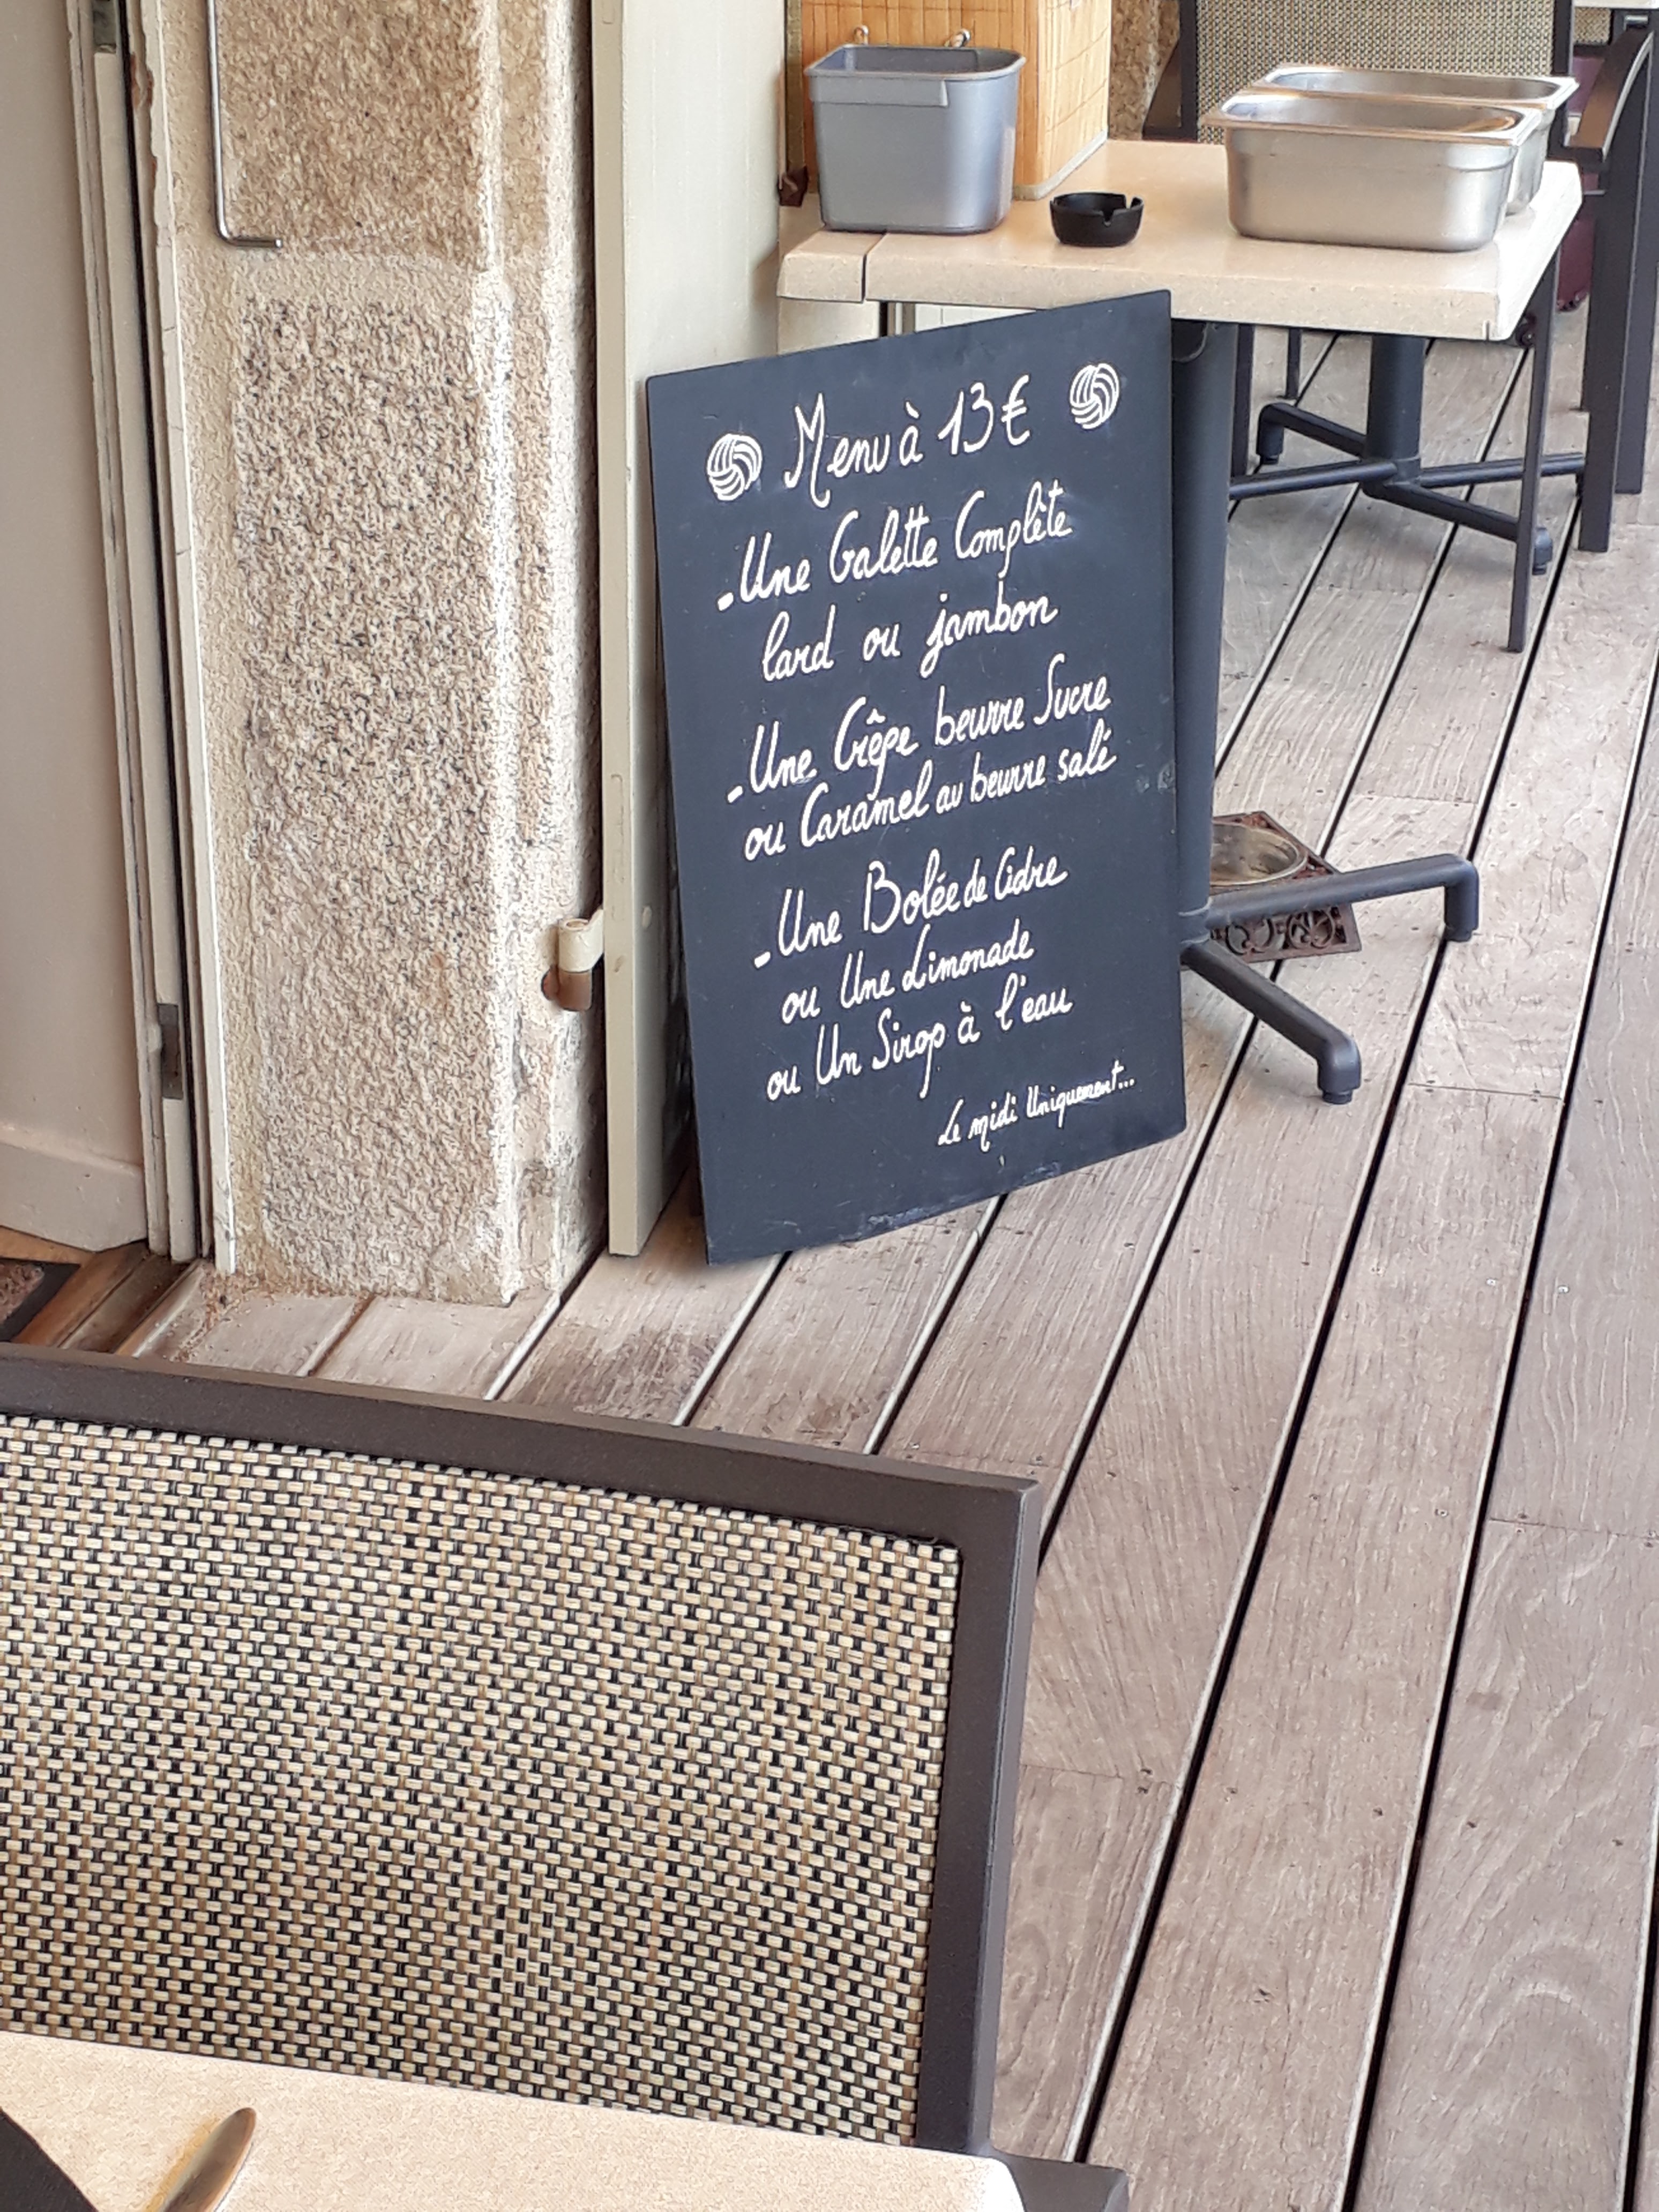 Menu à 13€
- Une Galette Complète
lard ou jambon
- Une Crêpe beurre Sucre
ou Caramel au beurre salé
- Une Bolée de Cidre
ou Une Limonade
ou Un Sirop à l'eau
Le midi Uniquement...